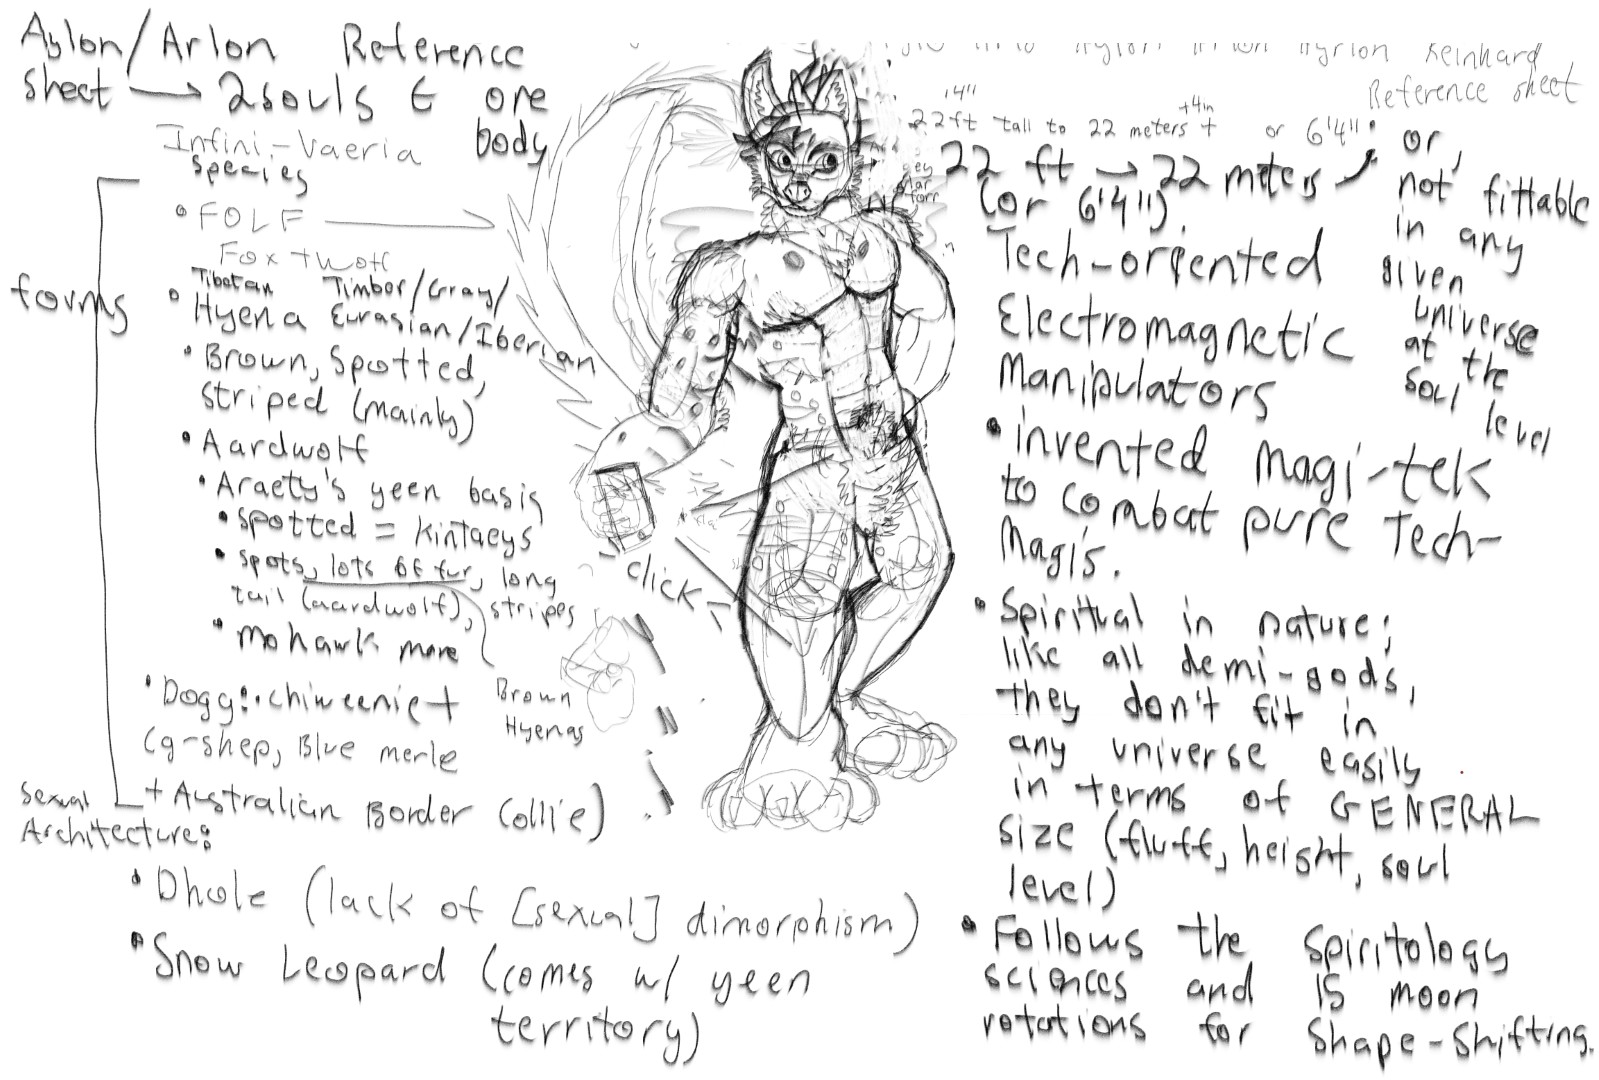 Aylon/Arlon Reference
sheet → 2souls & one
body
Infini-Vaeria
species
forms
• FOLF →
Fox + Wolf
Tibetan Timber/Gray/
Eurasian/Iberian
• Hyena
• Brown, Spotted,
striped (mainly)
• Aardwolf
• Araety's yeen basis
• spotted = Kintaeys
• spots, lots of fur, long
tail (aardwolf), stripes
• mohawk mane
Brown
Hyenas
• Dogg: chiweenie +
(g-shep, Blue merle
+ Australian Border Collie)
Sexual
Architecture:
• Dhole (lack of [sexual] dimorphism)
• Snow Leopard (comes w/ yeen
territory)
click
Aylon Arlon Ayrlon Reinhard
Reference sheet
'4"
22ft tall to 22 meters +4in or 6'4"
22 ft → 22 meters
(or 6'4").
or,
not fittable
in any
given
universe
at the
soul level
Tech-oriented
Electromagnetic
Manipulators
• invented magi-tek
to combat pure Tech-
Magis.
• Spiritual in nature;
like all demi-gods,
they don't fit in
any universe easily
in terms of GENERAL
size (fluff, height, soul
level)
• Follows the Spiritology
sciences and 15 moon
rotations for Shape-Shifting.